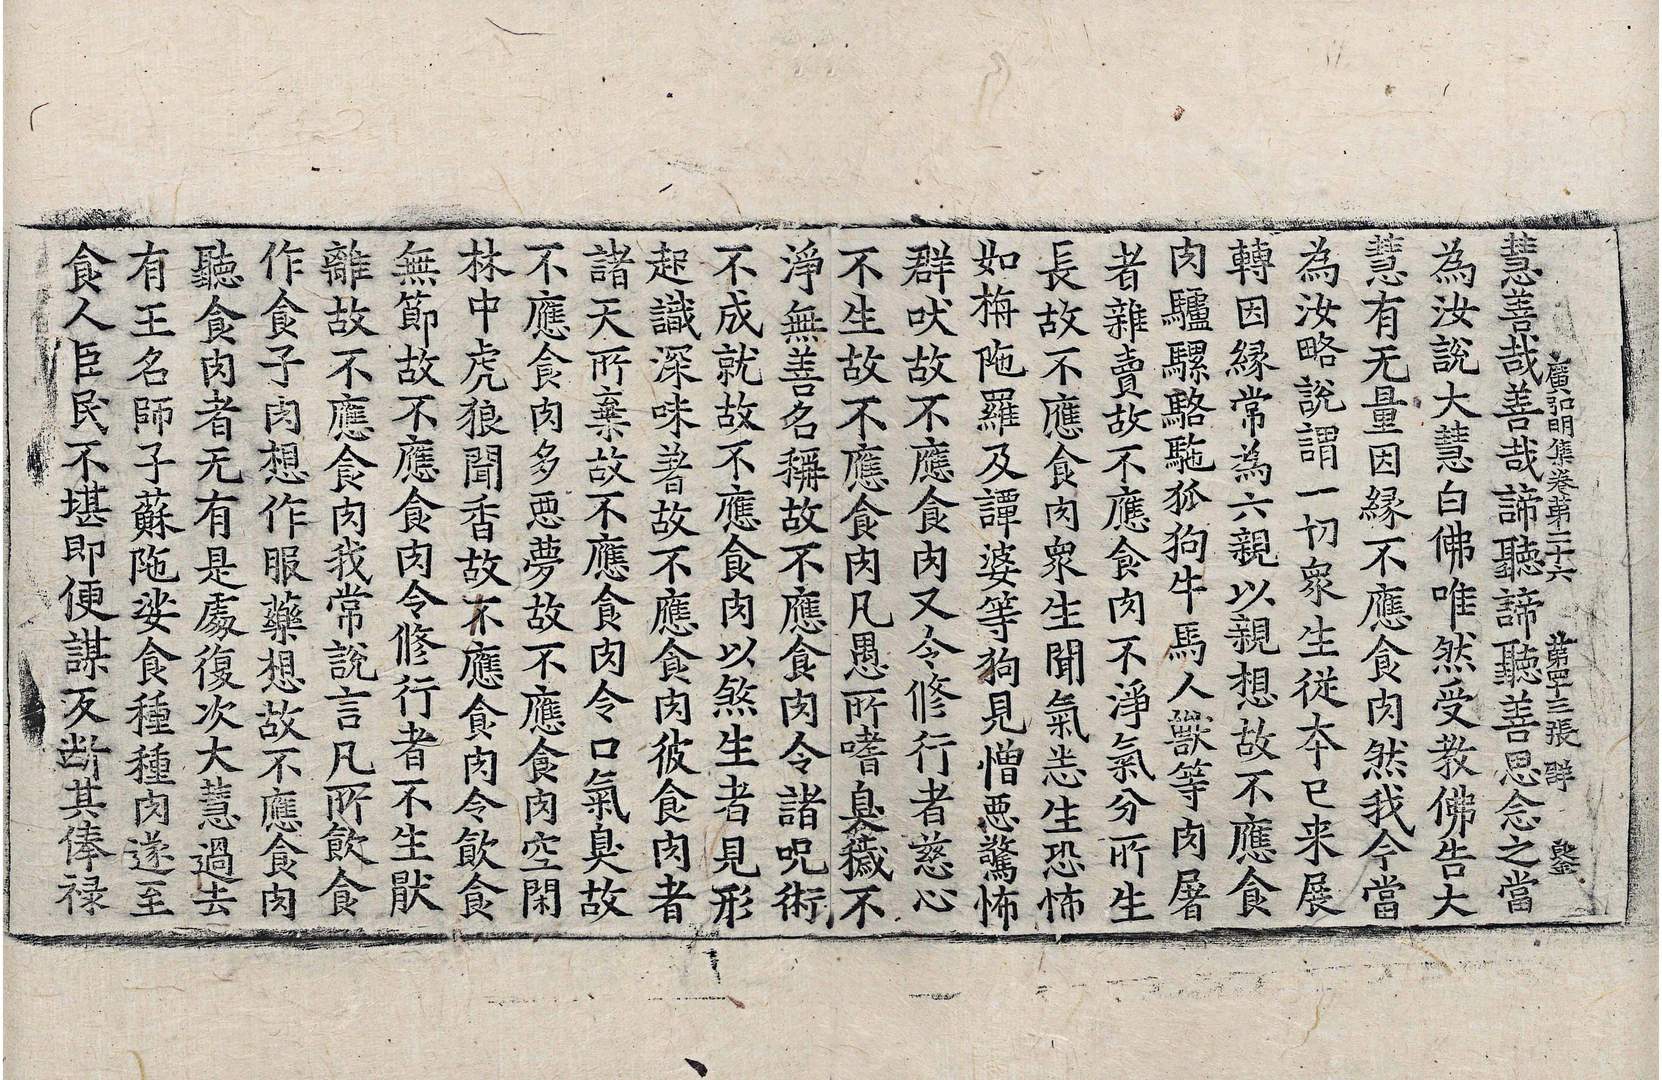 廣弘明集卷第二十六　第四十三張　群
慧善哉善哉諦聽諦聽善思念之當
為汝說大慧白佛唯然受教佛告大
慧有无量因縁不應食肉然我今當
為汝略說謂一切衆生從夲已来展
轉因縁常為六親以親想故不應食
肉驢騾駱駞狐狗牛馬人獸等肉屠
者雜賣故不應食肉不淨氣分所生
長故不應食肉衆生聞氣恙生恐怖
如栴陁羅及譚婆等狗見憎惡驚怖
群吠故不應食肉又令修行者慈心
不生故不應食肉凡愚所嗜臭穢不
淨無善名稱故不應食肉令諸呪術
不成就故不應食肉以煞生者見形
起識深味著故不應食肉彼食肉者
諸天所棄故不應食肉令口氣臭故
不應食肉多惡夢故不應食肉空閑
林中虎狼聞香故不應食肉令飲食
無節故不應食肉令修行者不生猒
離故不應食肉我常說言凡所飲食
作食子肉想作服藥想故不應食肉
聽食肉者无有是處復次大慧過去
有王名師子蘇陁娑食種種肉遂至
食人臣民不堪即便謀反断其俸禄